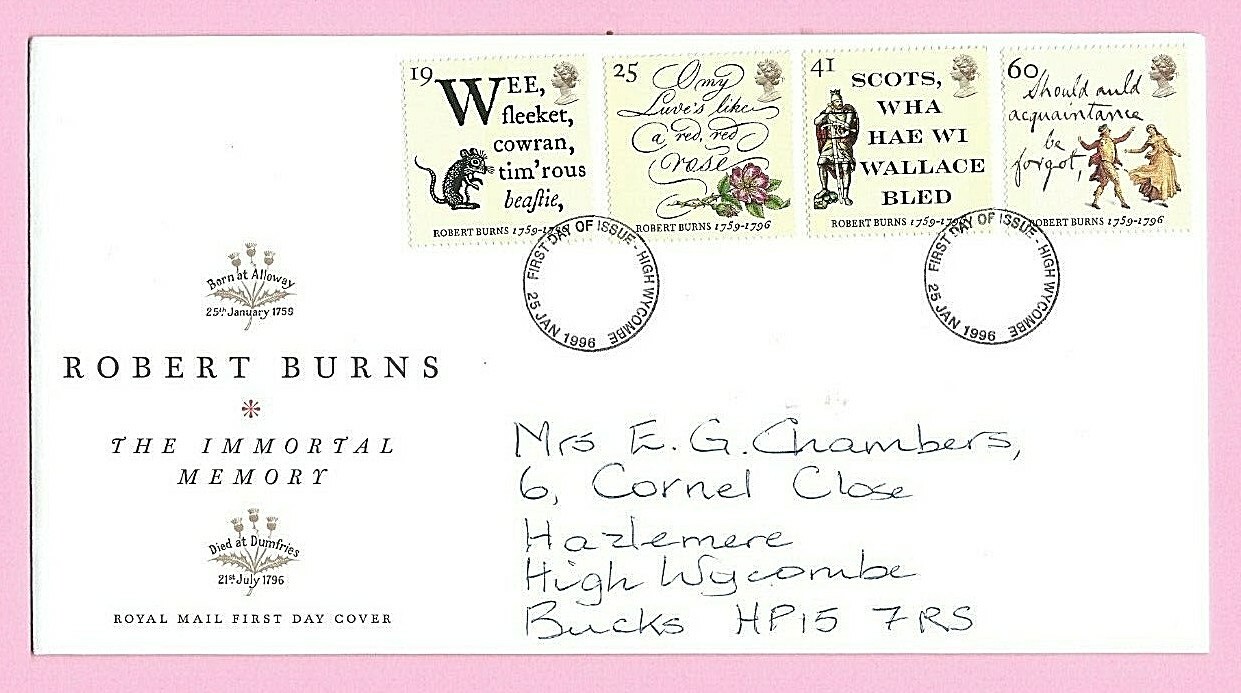 19
WEE,
fleeket,
cowran,
tim'rous
beaſtie,
ROBERT BURNS 1759-1796
25
O my
Luve's like
a red, red
rose
ROBERT BURNS 1759-1796
41
SCOTS,
WHA
HAE WI
WALLACE
BLED
ROBERT BURNS 1759-1796
60
Should auld
acquaintance
be
forgot,
ROBERT BURNS 1759-1796
FIRST DAY OF ISSUE - HIGH WYCOMBE
25 JAN 1996
FIRST DAY OF ISSUE - HIGH WYCOMBE
25 JAN 1996
Born at Alloway
25th January 1759
ROBERT BURNS
THE IMMORTAL
MEMORY
Died at Dumfries
21st July 1796
ROYAL MAIL FIRST DAY COVER
Mrs E. G. Chambers,
6, Cornel Close
Hazlemere
High Wycombe
Bucks HP15 7RS